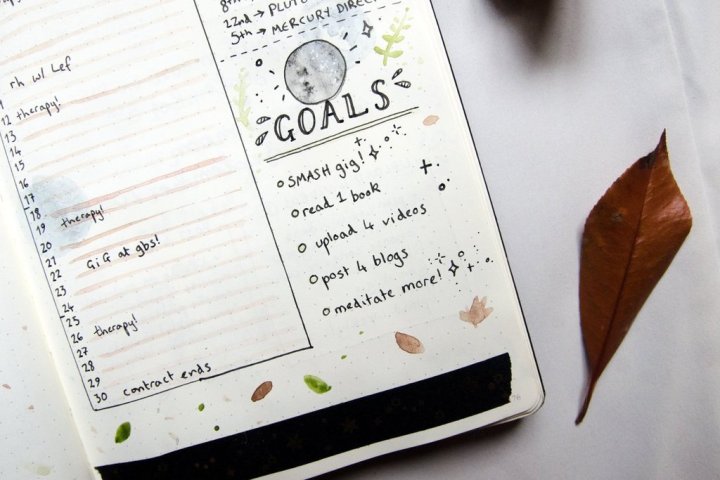 22nd → PLUTO
5th → MERCURY DIREC
rh w/ Lef
12 therapy!
13
14
15
16
17
18
19 therapy!
20
21
22 GiG at gbs!
23
24
25
26 therapy!
27
28
29
30 contract ends
GOALS
SMASH gig!
read 1 book
upload 4 videos
post 4 blogs
meditate more!